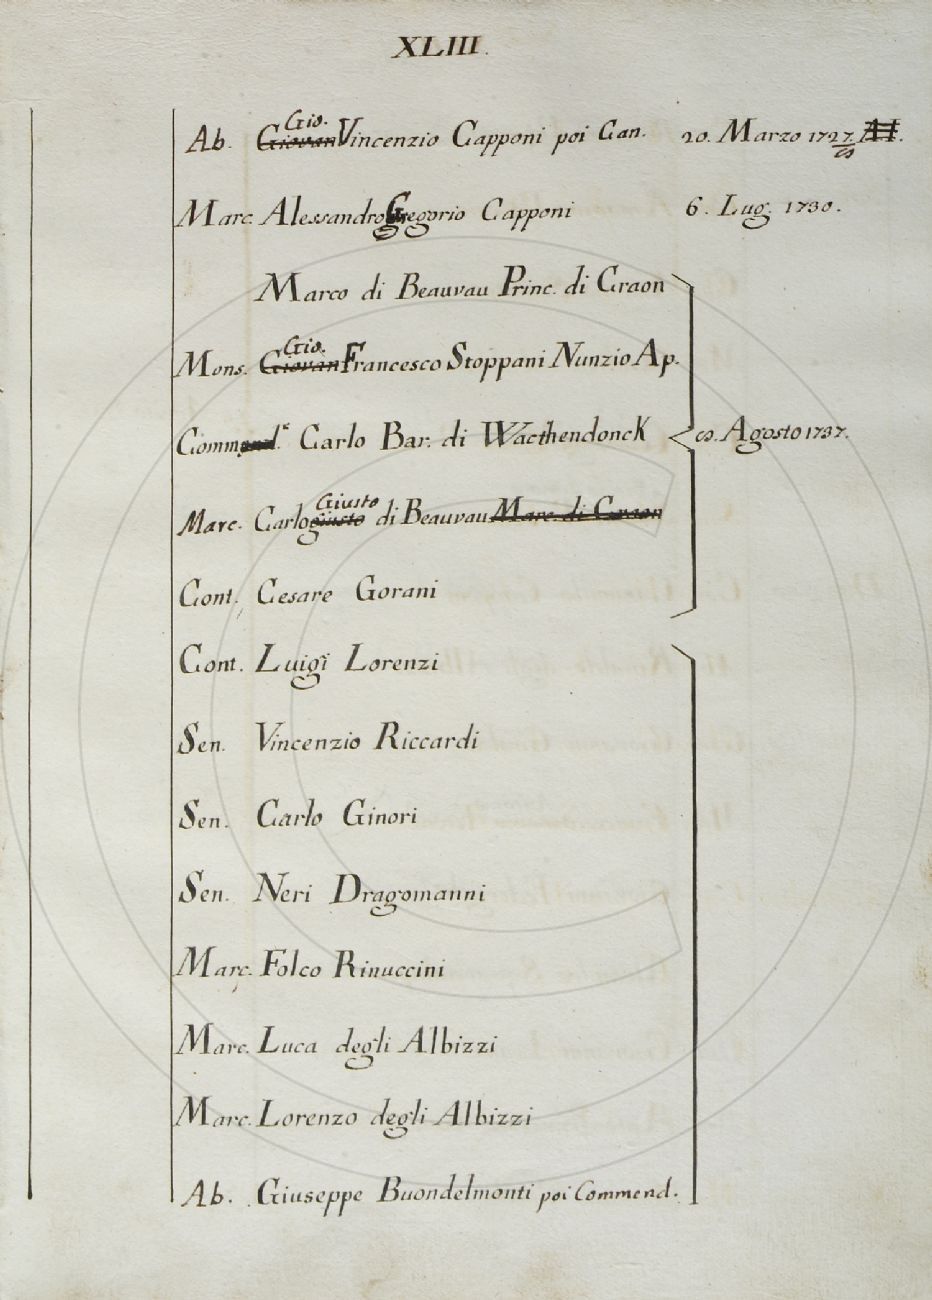 XLIII.
Ab. Giovan Gio. Vincenzio Capponi poi Can. 20. Marzo 1727.
Marc. Alessandro Gregorio Capponi 6. Lug. 1730.
Marco di Beauvau Princ. di Craon
Mons. Giovan Gio. Francesco Stoppani Nunzio Ap.
Command.e Carlo Bar. di Wacthendonck Agosto 1737.
Marc. Carlo giusto Giusto di Beauvau Marc. di Craon
Cont. Cesare Gorani
Cont. Luigi Lorenzi
Sen. Vincenzio Riccardi
Sen. Carlo Ginori
Sen. Neri Dragomanni
Marc. Folco Rinuccini
Marc. Luca degli Albizzi
Marc. Lorenzo degli Albizzi
Ab. Giuseppe Buondelmonti poi Commend.